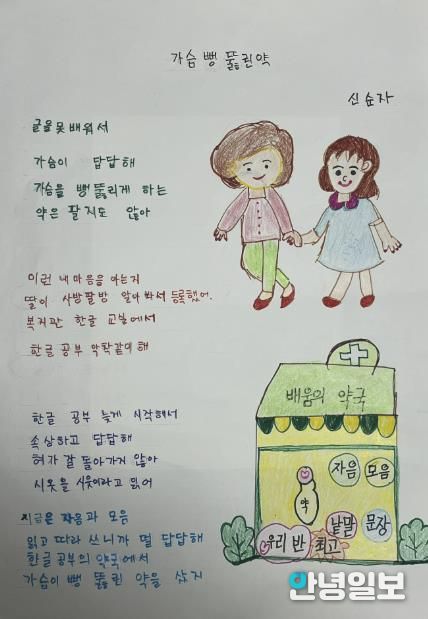 가슴 뻥 뚫린약
신순자
글을 못 배워서
가슴이 답답해
가슴을 뻥 뚫리게 하는
약은 팔지도 않아
이런 내 마음을 아는지
딸이 사방팔방 알아봐서 등록했어.
복지관 한글 교실에서
한글 공부 악착같이 해
한글 공부 늦게 시작해서
속상하고 답답해
혀가 잘 돌아가지 않아
시옷을 시읏이라고 읽어
지금은 자음과 모음
읽고 따라 쓰니까 덜 답답해
한글공부의 약국에서
가슴이 뻥 뚫린 약을 샀지
배움의 약국
자음 모음
약
낱말 문장
우리 반 최고
안녕일보